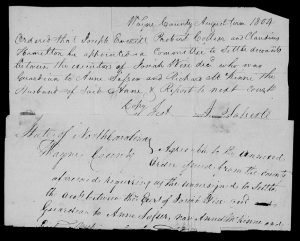 Wayne County August Term 1804
Ordered that Joseph Everitt Probert Collier and Claudius
Hamilton be appointed a Committee to settle accounts
between the executors of Jonah Wise decd who was
Guardian to Anne Sasser and Richard McKinne the
Husband of said Anne & Report to next court
Copy Test
State of North Carolina
Wayne County Agreeable to the annexed
Order issued from the county
aforesaid requiring us the undersigned to settle
the accts between the Exrs of Jonah Wise
Guardian to Anne Sasser, now Anne McKinne and